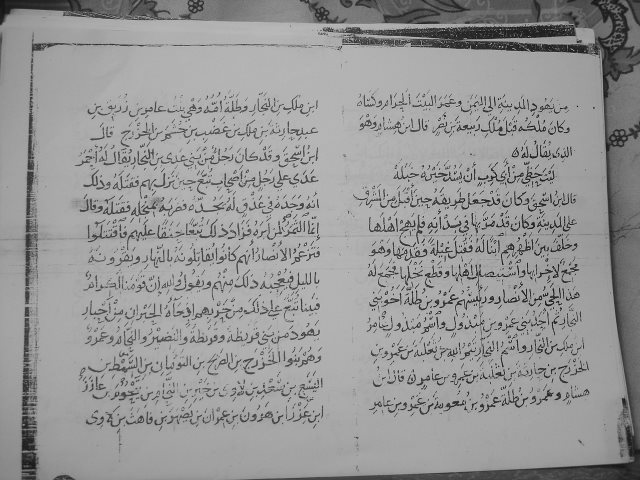 من يهود المدينة الى اليمن وعمر البيت الحرام وكساه
وكان ملكه قبل ملك ربيعة بن نصر قال ابن هشام وهو
الذى يقال له
ليت حظى من أبى كرب أن يسد خيره خبله
قال ابن اسحق وكان قد جعل طريقه حين أقبل من المشرق
على المدينة وكان قد مر بها فى بدأته فلم يهج أهلها
وخلف بين اظهرهم ابنا له فقتل غيلة فقدمها وهو
مجمع لاخرابها واستيصال اهلها وقطع نخلها فجمع له
هذا الحى من الانصار ورئيسهم عمرو بن طلة أخو بنى
النجار ثم أحد بنى عمرو بن مبذول واسم مبذول عامر
ابن ملك بن النجار واسم النجار تيم الله بن ثعلبة بن عمرو بن
الخزرج بن حارثة بن ثعلبة بن عمرو بن عامر قال ابن
هشام وعمرو بن طلة عمرو بن معوية بن عمرو بن عامر
ابن ملك بن النجار وطلة أمه وهى بنت عامر بن زريق بن
عبد حارثة بن ملك بن غضب بن جشم بن الخزرج قال
ابن اسحق وقد كان رجل من بنى عدى بن النجار يقال له أحمر
عدى على رجل من أصحاب تبع حين نزل بهم فقتله وذلك
انه وجده فى عذق له يجده فضربه بمنجله فقتله وقال
إنما التمر لمن أبره فزاد ذلك تبعا حنقا عليهم فاقتتلوا
فتزعم الانصار أنهم كانوا يقاتلونه بالنهار ويقرونه
بالليل فيعجبه ذلك منهم ويقول والله إن قومنا لكرام
فبينا تبع على ذلك من حربهم إذ جاءه حبران من أحبار
يهود من بنى قريظة وقريظة والنضير والنجام وعمرو
وهو بنو الخزرج بن الصريح بن التومان بن السبط بن
اليسع بن سعد بن لاوى بن خير بن النجام بن تنحوم بن عازر
ابن عزرا بن هرون بن عمران بن يصهر بن قاهث بن لاوى